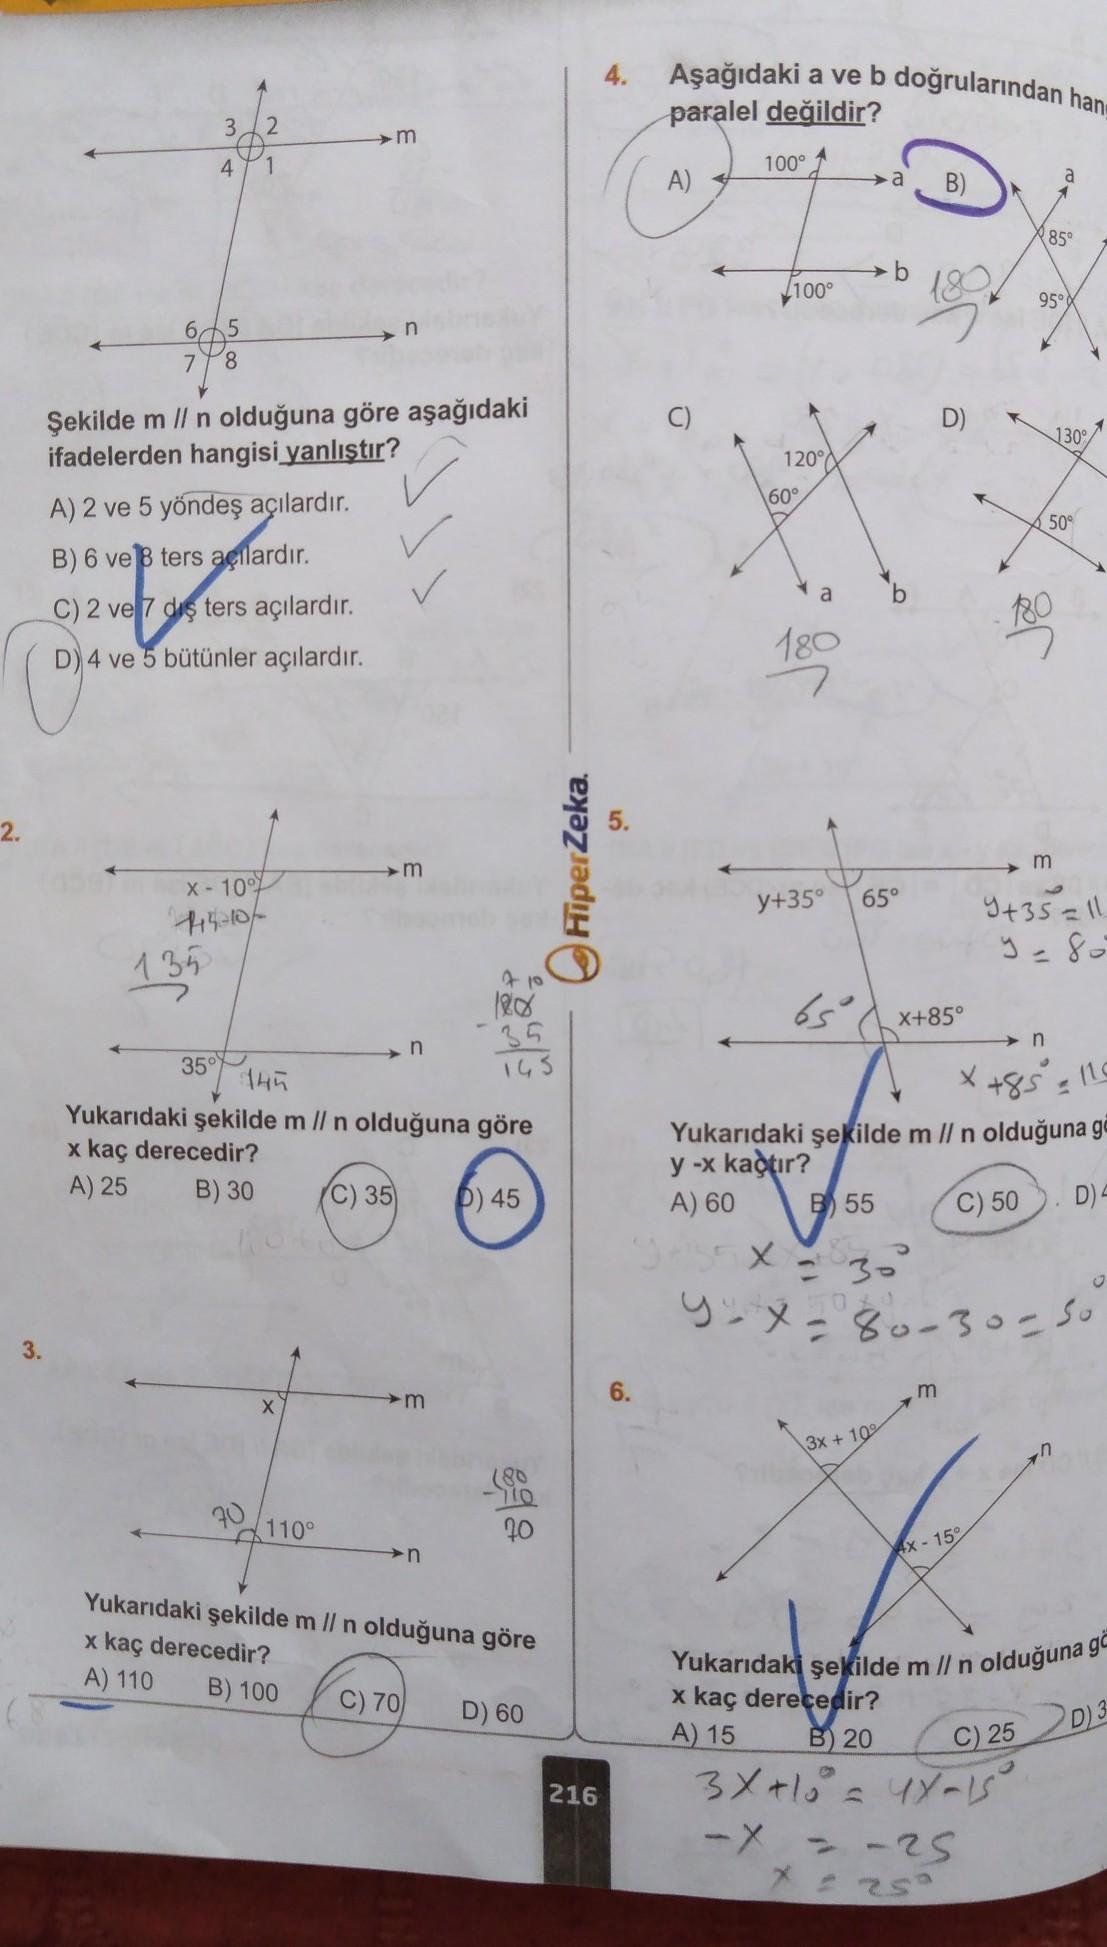 3 2
m
4 1
6 5
n
7 8
Şekilde m // n olduğuna göre aşağıdaki
ifadelerden hangisi yanlıştır?
A) 2 ve 5 yöndeş açılardır.
B) 6 ve 8 ters açılardır.
C) 2 ve 7 dış ters açılardır.
D) 4 ve 5 bütünler açılardır.
2.
m
x - 10°
135
35°
n
145
180
- 35
145
Yukarıdaki şekilde m // n olduğuna göre
x kaç derecedir?
A) 25 B) 30 C) 35 D) 45
3.
m
x
70 110°
n
180
-110
70
Yukarıdaki şekilde m // n olduğuna göre
x kaç derecedir?
A) 110 B) 100 C) 70 D) 60
HiperZeka.
4. Aşağıdaki a ve b doğrularından
paralel değildir?
A) 100° a
b
100°
B) a
85°
95°
180
C) 120°
60°
a b
180
D) 130°
50°
180
5.
m
y+35° 65°
y+35° = 11
y = 80
65° x+85°
n
x+85° = 11
Yukarıdaki şekilde m // n olduğuna
y -x kaçtır?
A) 60 B) 55 C) 50 D)
x = 30°
y - x = 80-30=50°
6.
m
3x + 10°
n
4x - 15°
Yukarıdaki şekilde m // n olduğuna
x kaç derecedir?
A) 15 B) 20 C) 25 D) 3
3x+10° = 4x-15°
-x = -25
x = 25°
216